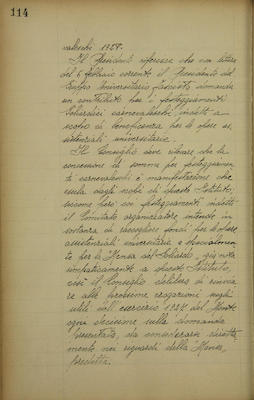 114
1927.
Il Presidente riferisce che con lettera
del 6 febbraio corrente il presidente del
Gruppo Universitario fascista domanda
un contributo per i festeggiamenti
Goliardici carnevaleschi indetti a
scopo di beneficenza per le opere as
sistenziali universitarie.
Il Consiglio nel ritenere che la
concessione di somme per festeggiamen
ti carnevaleschi è manifestazione che
esula dagli scopi di questo Istituto,
siccome però coi festeggiamenti indetti
il Comitato organizzatore intende in
sostanza di raccogliere fondi per le opere
assistenziali universitarie e specialmen
te per la Mensa del Goliardo, già nota
simpaticamente a questo Istituto,
così il Consiglio delibera di rinvia
re alle prossime erogazioni sugli
utili dell'esercizio 1927 del Monte
ogni decisione sulla domanda
presentata, da considerarsi diretta
mente nei riguardi della Mensa
predetta.